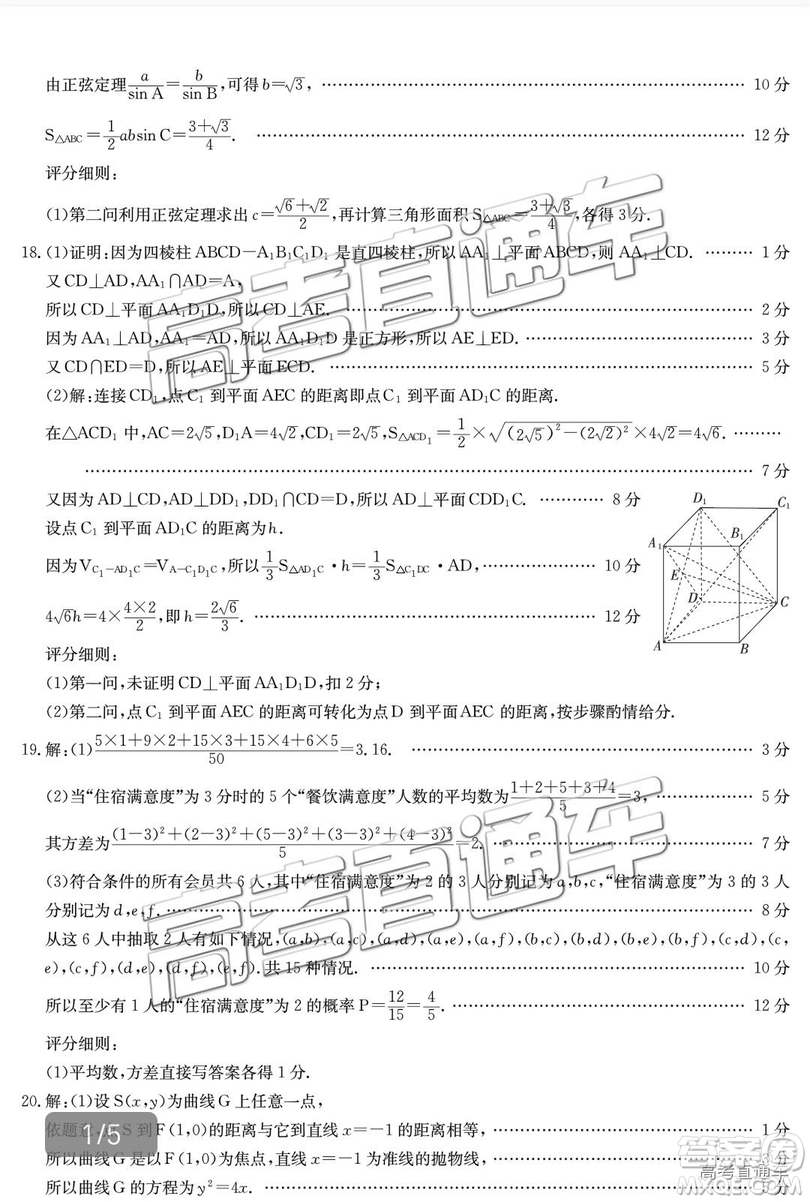 由正弦定理a/sin A=b/sin B,可得b=√3, …… 10 分
S△ABC=1/2absin C=(3+√3)/4. …… 12 分
评分细则:
(1)第二问利用正弦定理求出c=(√6+√2)/2,再计算三角形面积S△ABC=(3+√3)/4,各得3分.
18.(1)证明:因为四棱柱ABCD-A₁B₁C₁D₁是直四棱柱,所以AA₁⊥平面ABCD,则AA₁⊥CD. …… 1 分
又CD⊥AD,AA₁∩AD=A,
所以CD⊥平面AA₁D₁D,所以CD⊥AE. …… 2 分
因为AA₁⊥AD,AA₁=AD,所以AA₁D₁D是正方形,所以AE⊥ED. …… 3 分
又CD∩ED=D,所以AE⊥平面ECD. …… 5 分
(2)解:连接CD₁,点C₁到平面AEC的距离即点C₁到平面AD₁C的距离.
在△ACD₁中,AC=2√5,D₁A=4√2,CD₁=2√5,S△ACD₁=1/2×√((2√5)²-(2√2)²)×4√2=4√6. ……
…… 7 分
又因为AD⊥CD,AD⊥DD₁,DD₁∩CD=D,所以AD⊥平面CDD₁C. …… 8 分
设点C₁到平面AD₁C的距离为h.
因为V C₁-AD₁C=V A-C₁D₁C,所以1/3S△AD₁C·h=1/3S△C₁DC·AD, …… 10 分
4√6h=4×(4×2)/2,即h=2√6/3. …… 12 分
D₁ C₁
A₁ B₁
E
D C
A B
评分细则:
(1)第一问,未证明CD⊥平面AA₁D₁D,扣2分;
(2)第二问,点C₁到平面AEC的距离可转化为点D到平面AEC的距离,按步骤酌情给分.
19.解:(1)(5×1+9×2+15×3+15×4+6×5)/50=3.16. …… 3 分
(2)当“住宿满意度”为3分时的5个“餐饮满意度”人数的平均数为(1+2+5+3+4)/5=3, …… 5 分
其方差为((1-3)²+(2-3)²+(5-3)²+(3-3)²+(4-3)²)/5=2. …… 7 分
(3)符合条件的所有会员共6人,其中“住宿满意度”为2的3人分别记为a,b,c,“住宿满意度”为3的3人
分别记为d,e,f. …… 8 分
从这6人中抽取2人有如下情况,(a,b),(a,c),(a,d),(a,e),(a,f),(b,c),(b,d),(b,e),(b,f),(c,d),(c,
e),(c,f),(d,e),(d,f),(e,f).共15种情况. …… 10 分
所以至少有1人的“住宿满意度”为2的概率P=12/15=4/5. …… 12 分
评分细则:
(1)平均数,方差直接写答案各得1分.
20.解:(1)设S(x,y)为曲线G上任意一点,
依题意,点S到F(1,0)的距离与它到直线x=-1的距离相等, …… 1 分
所以曲线G是以F(1,0)为焦点,直线x=-1为准线的抛物线, …… 3 分
所以曲线G的方程为y²=4x. …… 5 分
1/5
高考直通车
高考直通车
答案圈
MXQE.COM
高考直通车